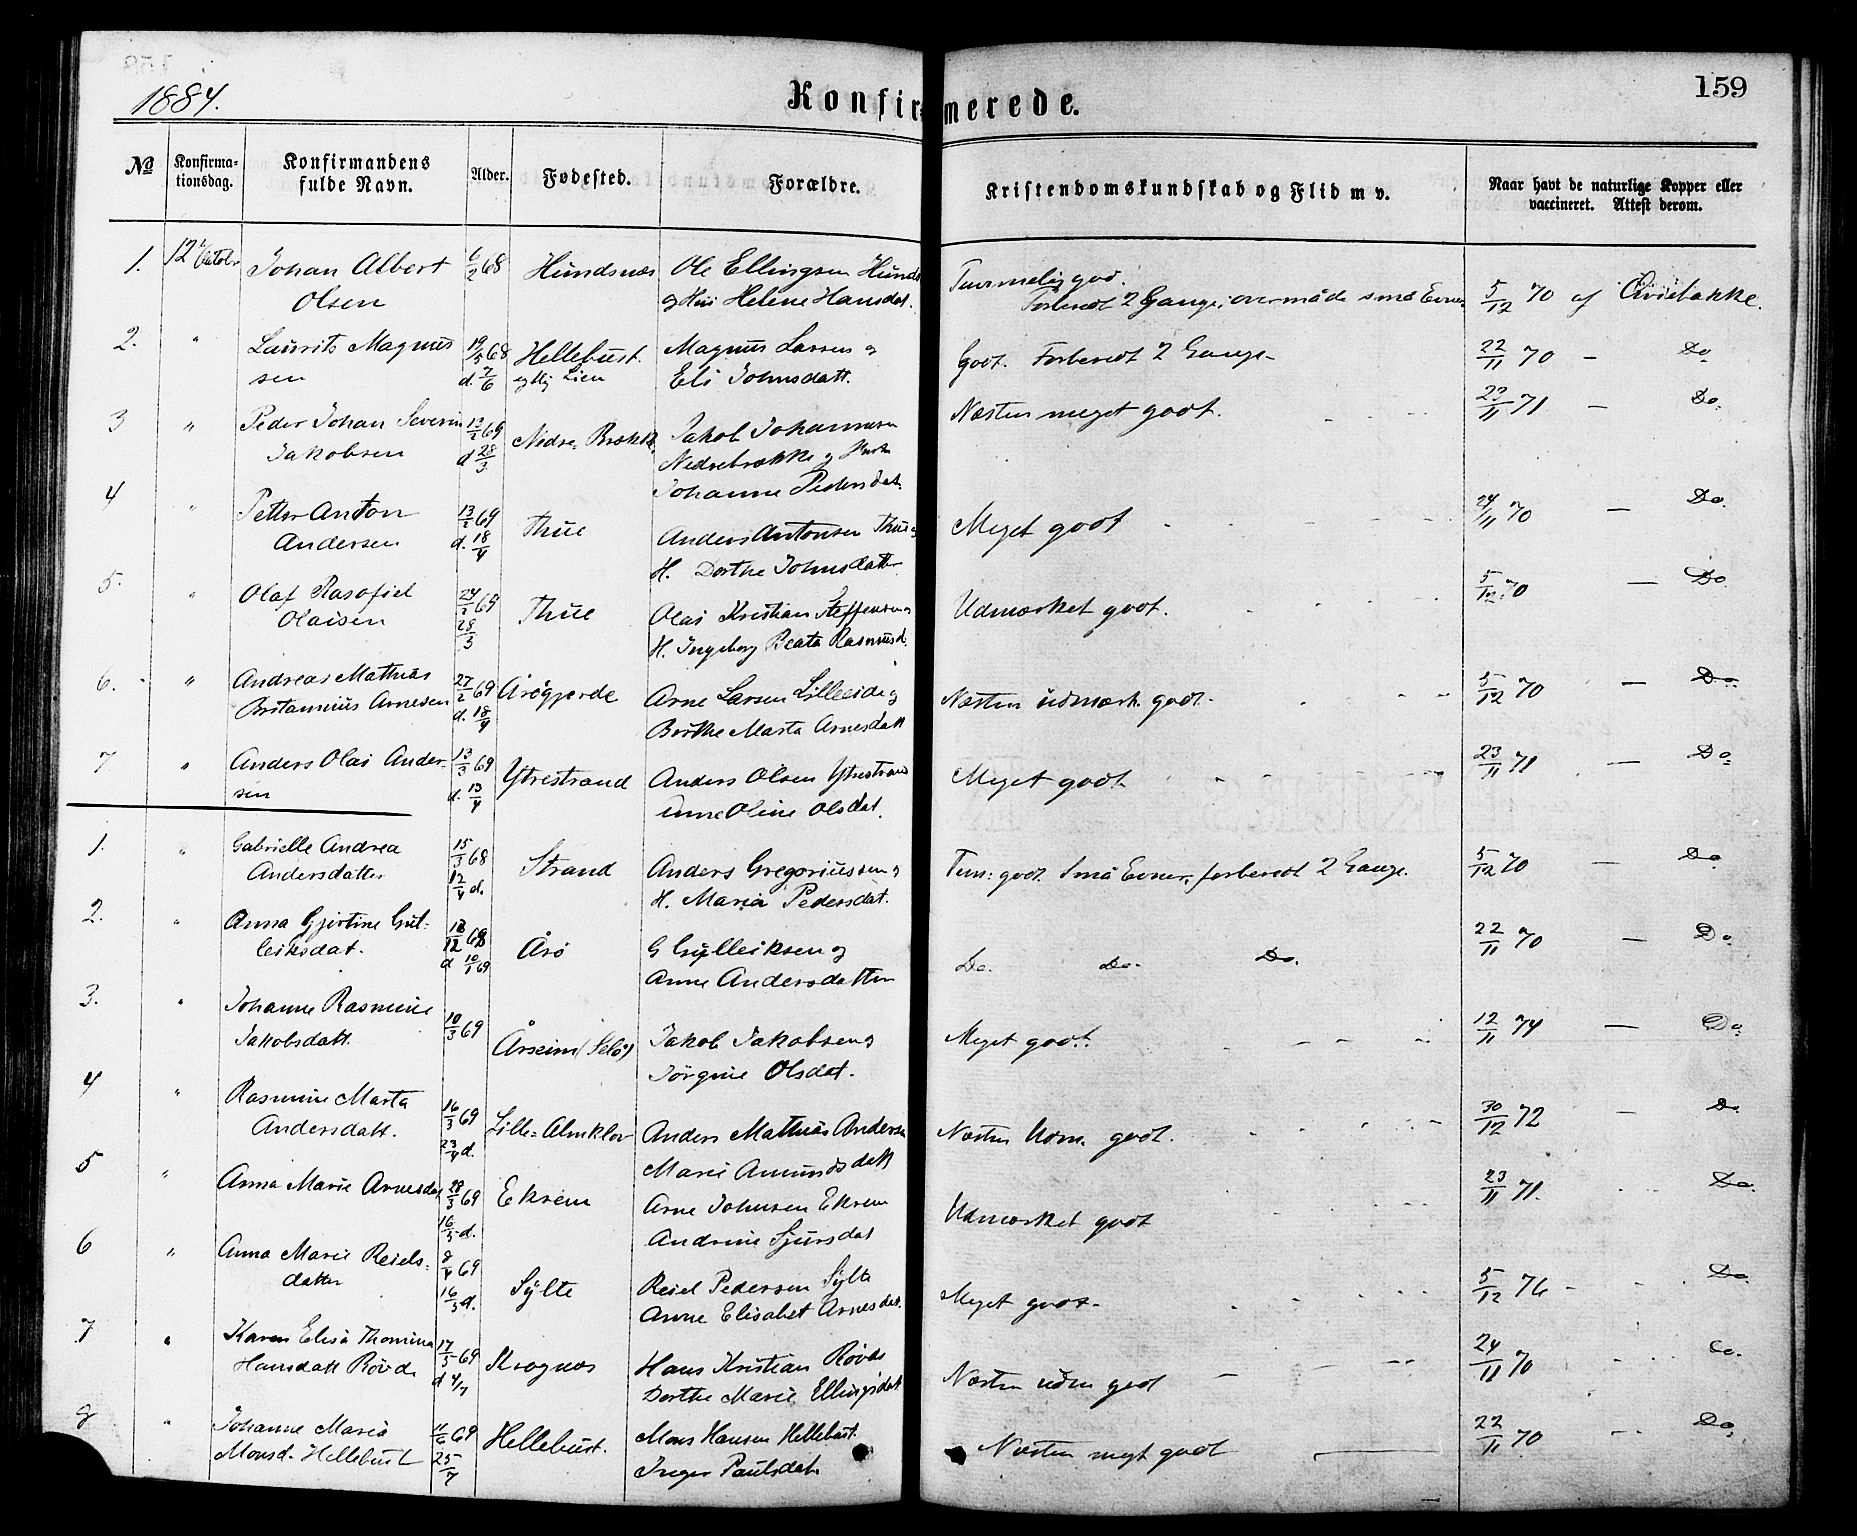 1884.
Konfirmerede.
159
No
Konfirma-
tionsdag.
Konfirmandens
fulde Navn.
Alder.
Fødested.
Forældre.
Kristendomskundskab og Flid m v.
Naar havt de naturlige Kopper eller
vaccineret. Attest derom.
1. 12 Johan Albert 68 Hundsnæs Ole Ellingsen
Olsen Helene Hansdat.
Forberedt 2 Gange, overmåde små 5/12 70 af
2. " Laurits Magnus 19/5 68 Hellebust. Magnus Larsen og Godt. Forberedt 2 Gange 22/11 70 - Do
sen d. 7/6 Lien Eli Johnsdatt.
3 " Peder Johan Severin 69 Nedre Jakob Johannesen Næsten meget godt. 23/11 71 - Do.
Jakobsen d 28/3 Nedrebrække og
Johanne Pedersdat.
4 " Petter Anton 13/2 69 Thue Anders Antonsen Thue Meget godt 24/11 70 - Do.
Andersen d. 18/4 H. Dorthe Johnsdatter
5. " Olaf 24/2 69 Thue Olai Kristian Steffensen Udmærket godt. 5/12 70 - Do.
Olaisen 28/3 H. Ingeborg Beata Rasmusd.
6. " Andreas Mathias 27/2 69 Årøgjerde Arne Larsen Lilleeide Næsten udmærk. godt. 5/12 70 - Do.
Arnesen d. 18/4 Birthe Marta Arnesdatt
7 " Anders Olai Ander- 13/3 69 Ytrestrand Anders Olsen Ytrestrand Meget godt 23/11 71 - Do.
sen d. 13/4 Anne Oline Olsdat.
1. " Gabrielle Andrea 15/3 68 Strand Anders Gregoriussen Tem: godt. Små Evner, forberedt 2 Gange. 5/12 70 - Do
Andersdatter 12/4 d. H. Maria Pedersdat.
2. " Anna Gjertine Gut- Årø G og Do. Do. Do. 22/11 70 - Do.
leiksdat. d 10/1 69 Anne Andersdatter
3. " Johanne Rasmine 10/3 69 Årseim (Selø) Jakob Jakobsen Meget godt. 12/11 74 - Do.
Jakobsdatt. Jørgine Olsdat.
4 " Rasmine Marta 16/3 69 Lille-Almklov Anders Mathias Andersen Næsten Udm. godt. 30/12 72 - Do.
Andersdatt. 23/4 d. Marie Amundsdatt
5 " Anna Marie Arnesdat 28/3 69 Ekrem Arne Johnsen Ekrem Udmærket godt 23/11 71. Do.
16/5 d. Andrine Sjursdat
6 " Anna Marie Reiels- 8/4 69 Sylte Reiel Pedersen Sylte Meget godt. 5/12 76 - Do.
datter 16/5 d. Anne Elisabet Arnesdat.
7 " Karen Elisa Thomina 17/5 69 Hans Kristian Røvde Næsten udm godt - 24/11 70 Do.
Hansdatt Røvde d 4/7 Dorthe Marie Ellingsdat
8 " Johanne Maria 69 Hellebust. Mons Hansen Hellebust. Næsten megt godt 22/11 70 - Do.
Monsd. Hellebust 25/7 Inger Paulsdat.